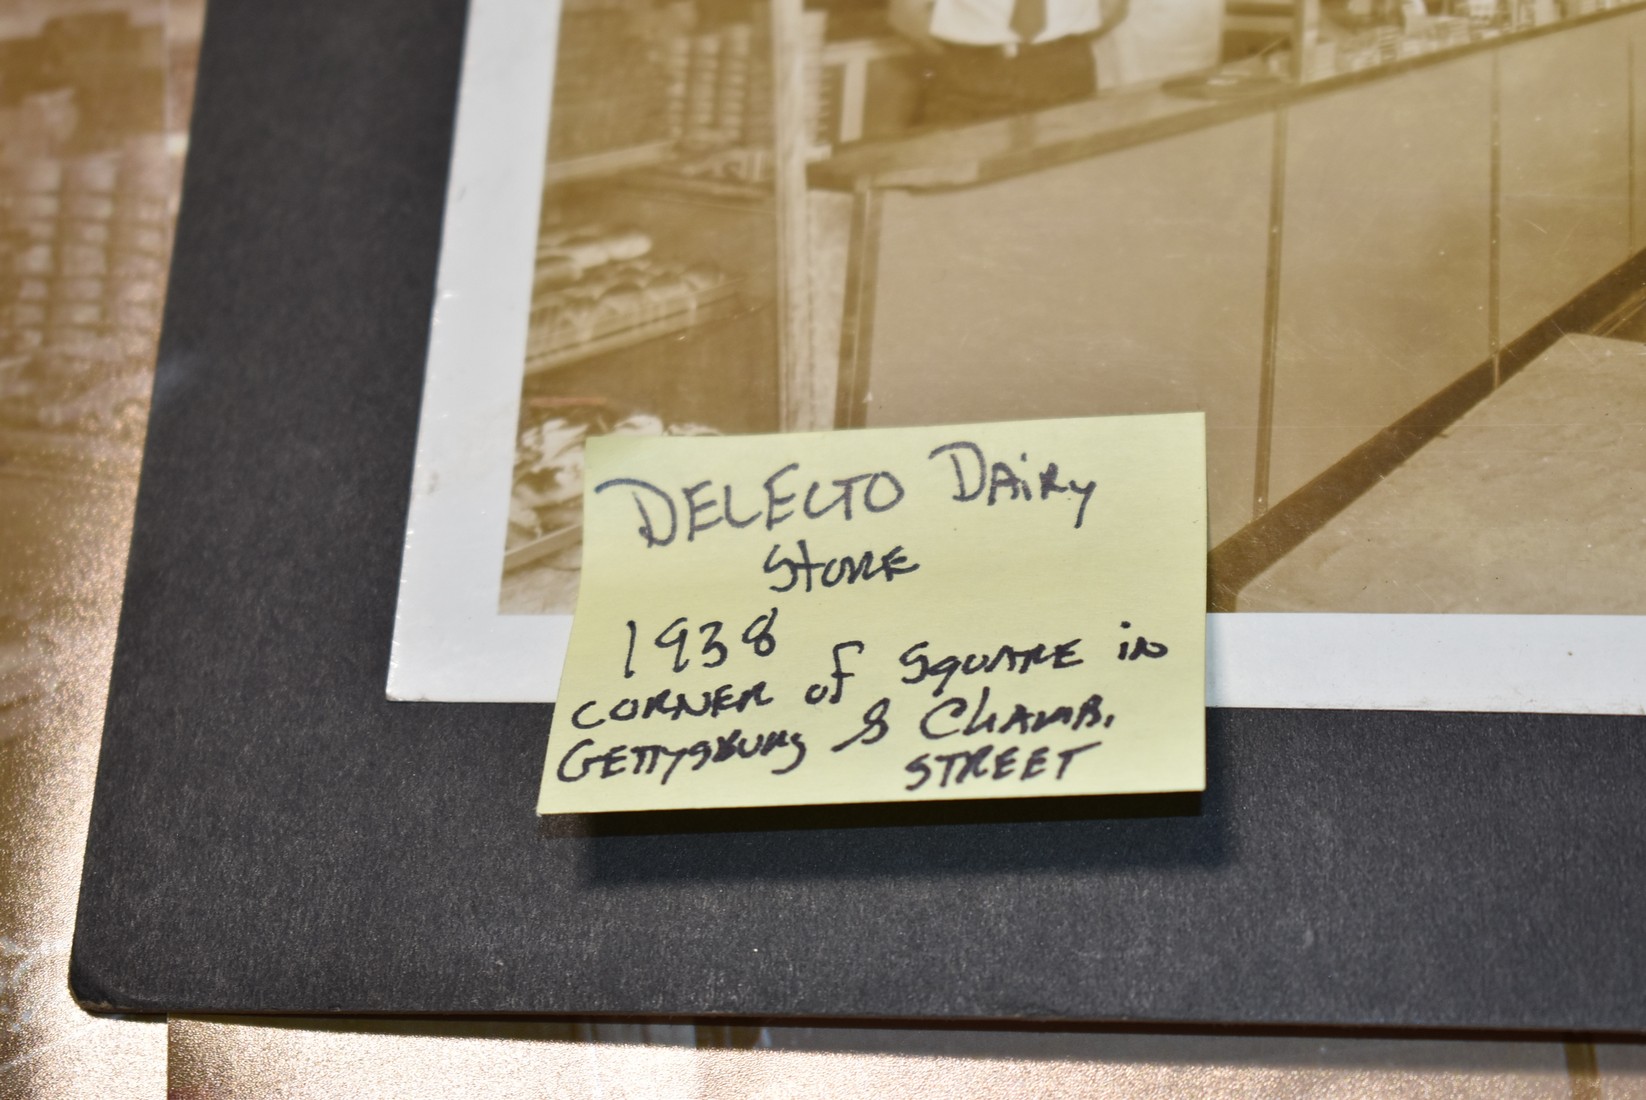 DELECTO DAiRy
StORE
1938
CORNER of SQUARE iN
GETTYSBURG & CHAMB.
STREET